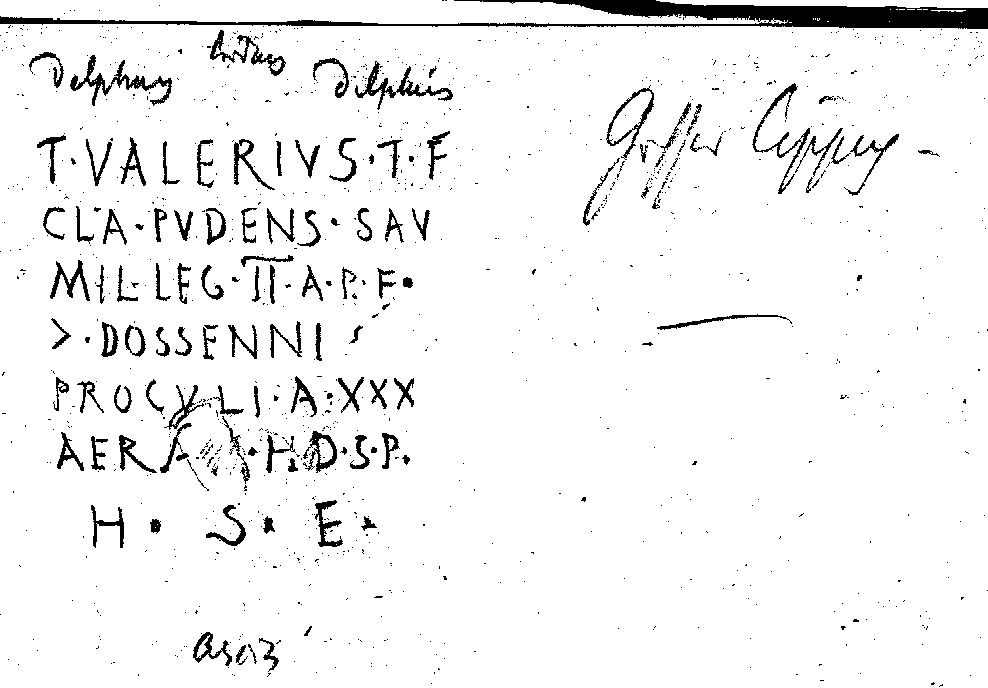 Delphin Delphin
T·VALERIVS·T·F
CLA·PVDENS·SAV
MIL·LEG·II·A·P·F·
>·DOSSENNI
PROCVLI·A·XXX
AERA ·H·D·S·P·
H · S · E ·
Großer Cippus –